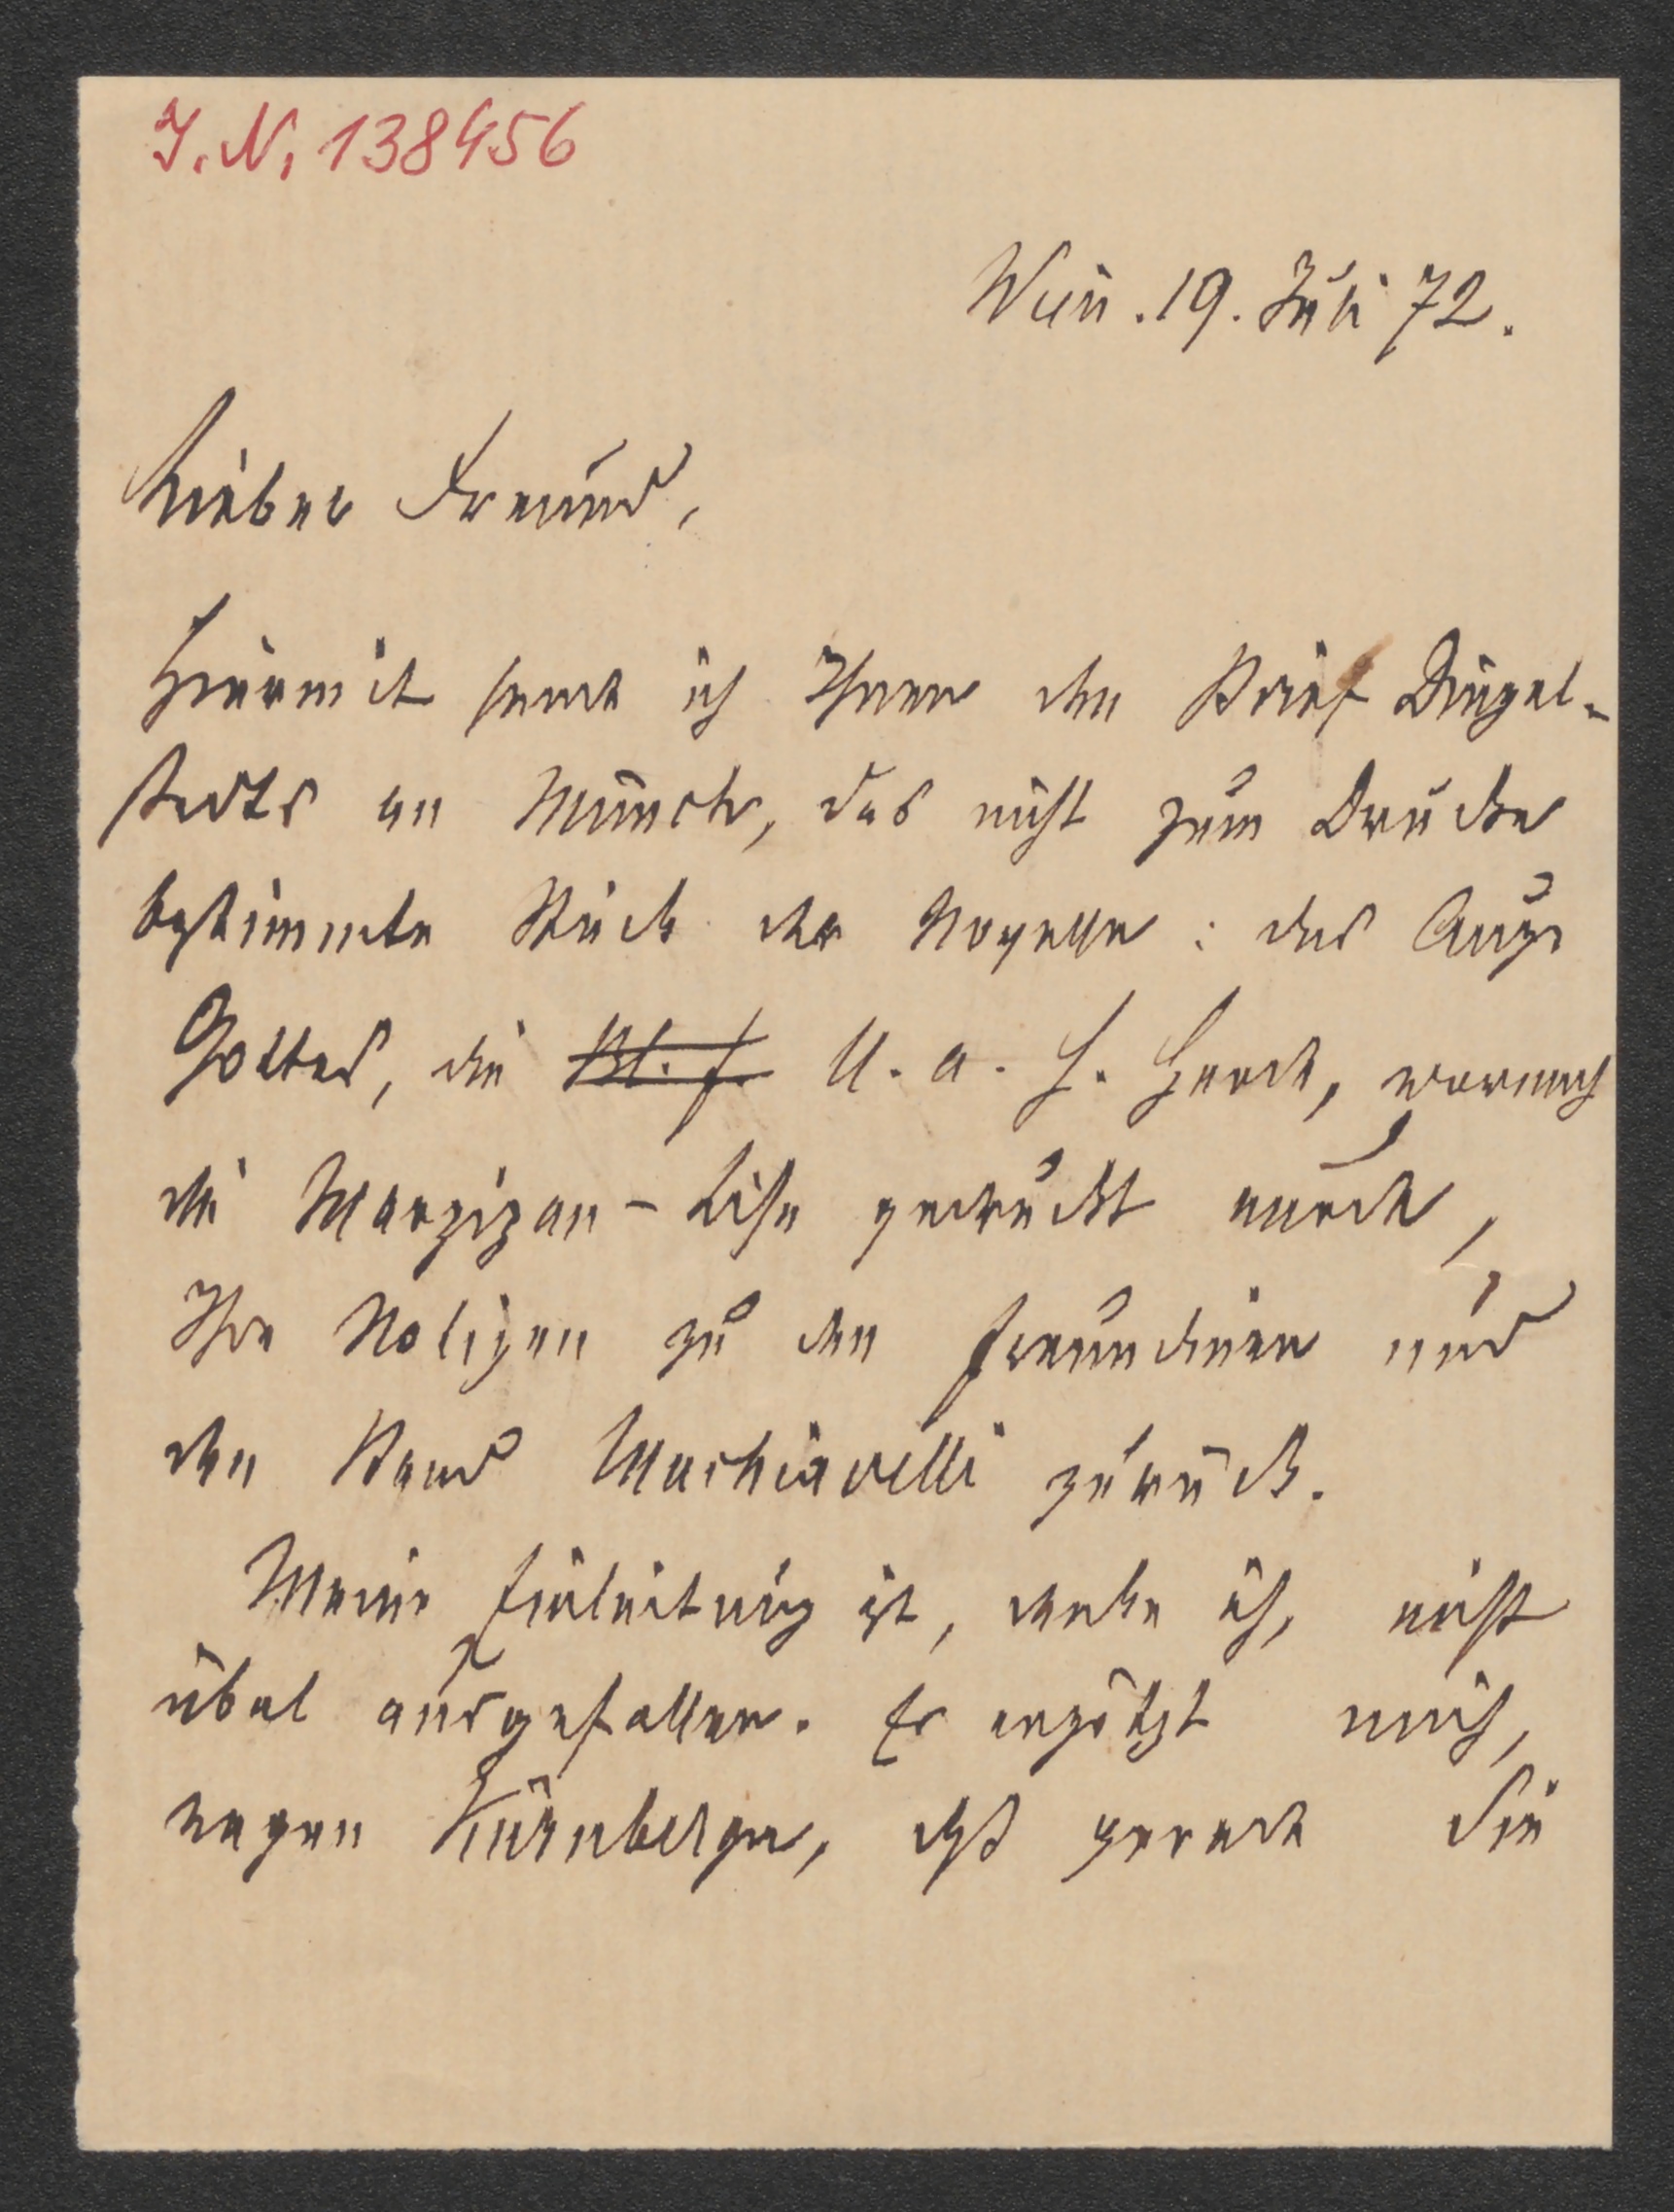 J. N. 138456
Wien. 19. Juli 72.
Lieber Freund,
Hiermit sende ich Ihnen den Brief Dingel-
stedts an Münch, das nicht zum Drucke
bestimmte Stück der Novelle: das Auge
Gottes, die Bl. f. U. a. h. Herd, wornach
die Marzipan-Lise gedruckt wurde,
Ihre Notizen zu den Freundinen und
den Band Machiavelli zurück.
Meine Einleitung ist, denke ich, nicht
übel ausgefallen. Es ergötzt mich,
wegen Kürnberger, daß gerade die